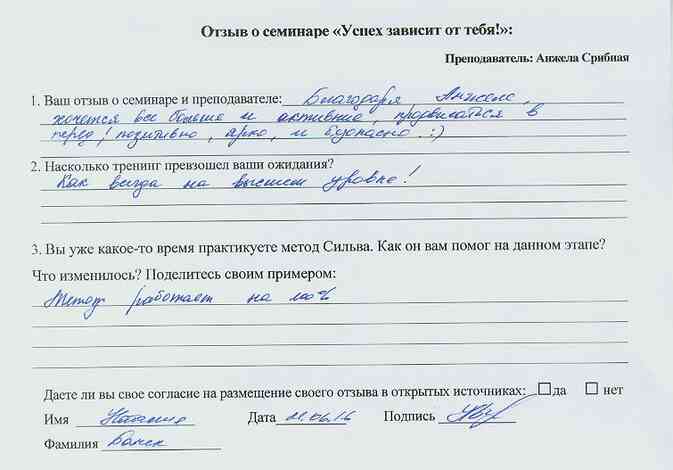 Отзыв о семинаре «Успех зависит от тебя!»:
Преподаватель: Анжела Срибная
1. Ваш отзыв о семинаре и преподавателе: Благодаря Анжеле,
хочется все больше и активнее, продвигаться в
перед! позитивно, ярко, и безопасно :)
2. Насколько тренинг превзошел ваши ожидания?
Как всегда на высшем уровне!
3. Вы уже какое-то время практикуете метод Сильва. Как он вам помог на данном этапе?
Что изменилось? Поделитесь своим примером:
Метод работает на 100%
Даете ли вы свое согласие на размещение своего отзыва в открытых источниках: да нет
Имя Наталия Дата .06.16 Подпись
Фамилия